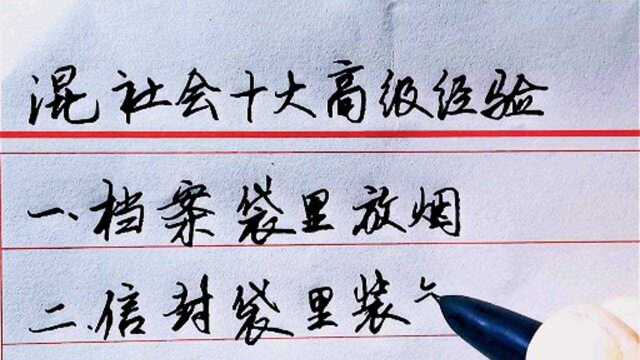 混社会十大高级经验
一.档案袋里放烟
二.信封袋里装